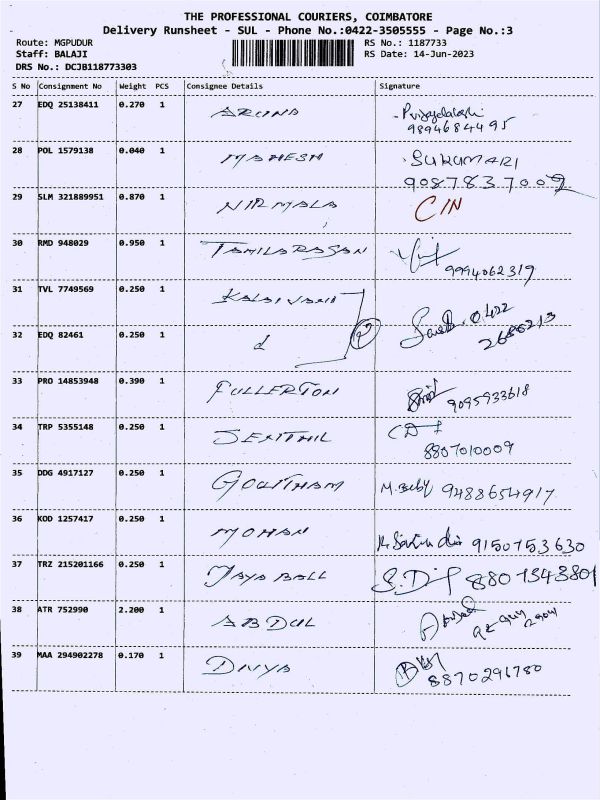 THE PROFESSIONAL COURIERS, COIMBATORE
Delivery Runsheet - SUL - Phone No.:0422-3505555 - Page No.:3
Route: MGPUDUR
Staff: BALAJI
DRS No.: DCJB118773303
RS No.: 1187733
RS Date: 14-Jun-2023
S No Consignment No Weight PCS Consignee Details Signature
27 EDQ 25138411 0.270 1 ARUNA
9894684495
28 POL 1579138 0.040 1 MAHESH SUKUMARI
9087837002
29 SLM 321889951 0.870 1 NIRMALA CIN
30 RMD 948029 0.950 1 TAMILARASAN
9994062319
31 TVL 7749569 0.250 1 KALAIVANI 0422
32 EDQ 82461 0.250 1 d (2) 2686213
33 PRO 14853948 0.390 1 FULLERTON 9095933618
34 TRP 5355148 0.250 1 SENTHIL
8807010009
35 DDG 4917127 0.250 1 GOUTHAM M. Baby 9488654917
36 KOD 1257417 0.250 1 MOHAN 9150753630
37 TRZ 215201166 0.250 1 JAYA BALL 8807343801
38 ATR 752990 2.200 1 ABDUL
39 MAA 294902278 0.170 1 DIVYA 8870296780